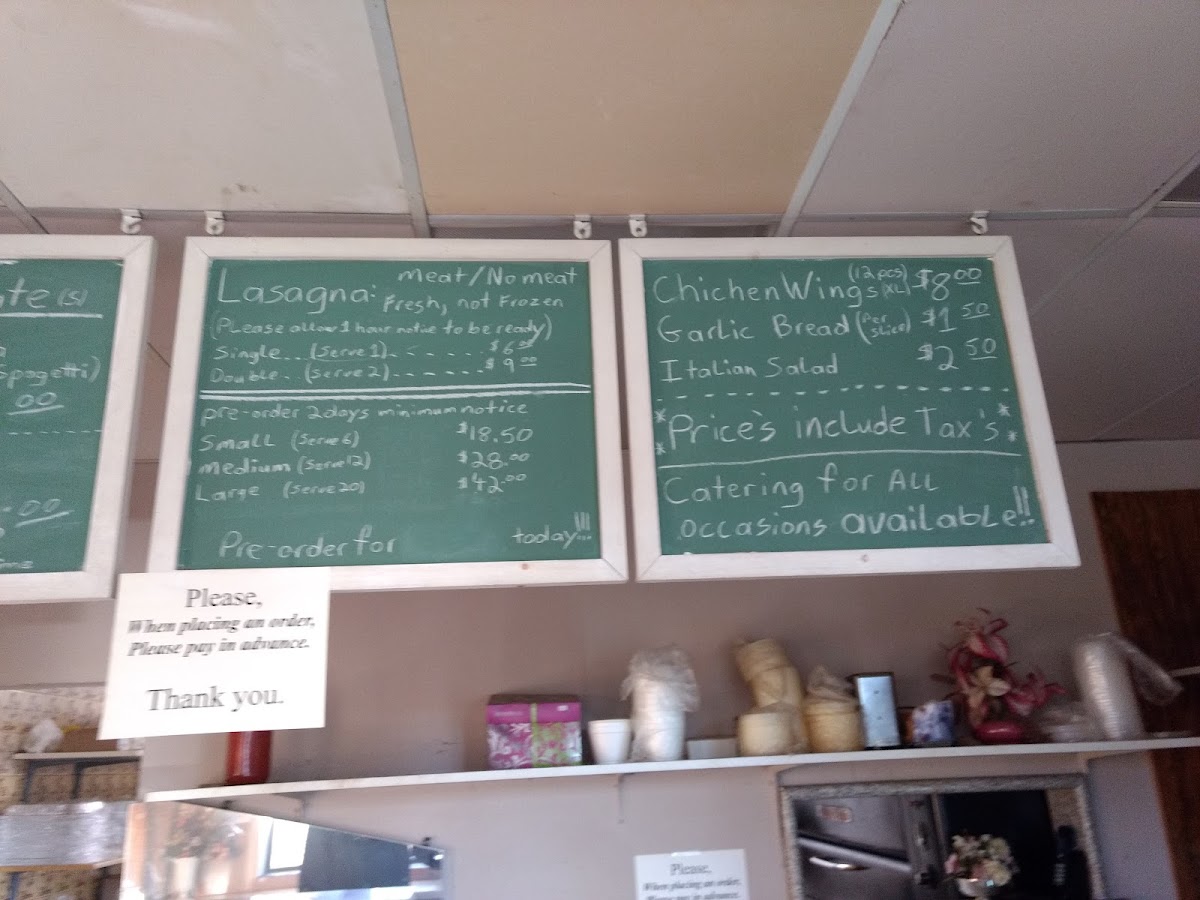 te (s)
spagetti)
00
.00
Lasagna: meat/No meat
Fresh, not Frozen
(Please allow 1 hour notive to be ready)
Single... (Serve 1)......... $6.00
Double... (Serve 2)......... $9.00
pre-order 2 days minimum notice
Small (Serve 6) $18.50
Medium (Serve 12) $28.00
Large (Serve 20) $42.00
Pre-order for today!!!
Chichen Wings (12 pcs) (XL) $8.00
Garlic Bread (Per slice) $1.50
Italian Salad $2.50
*Price's include Tax's*
Catering for All
occasions available!!
Please,
When placing an order,
Please pay in advance.
Thank you.
Please,
When placing an order,
Please pay in advance.